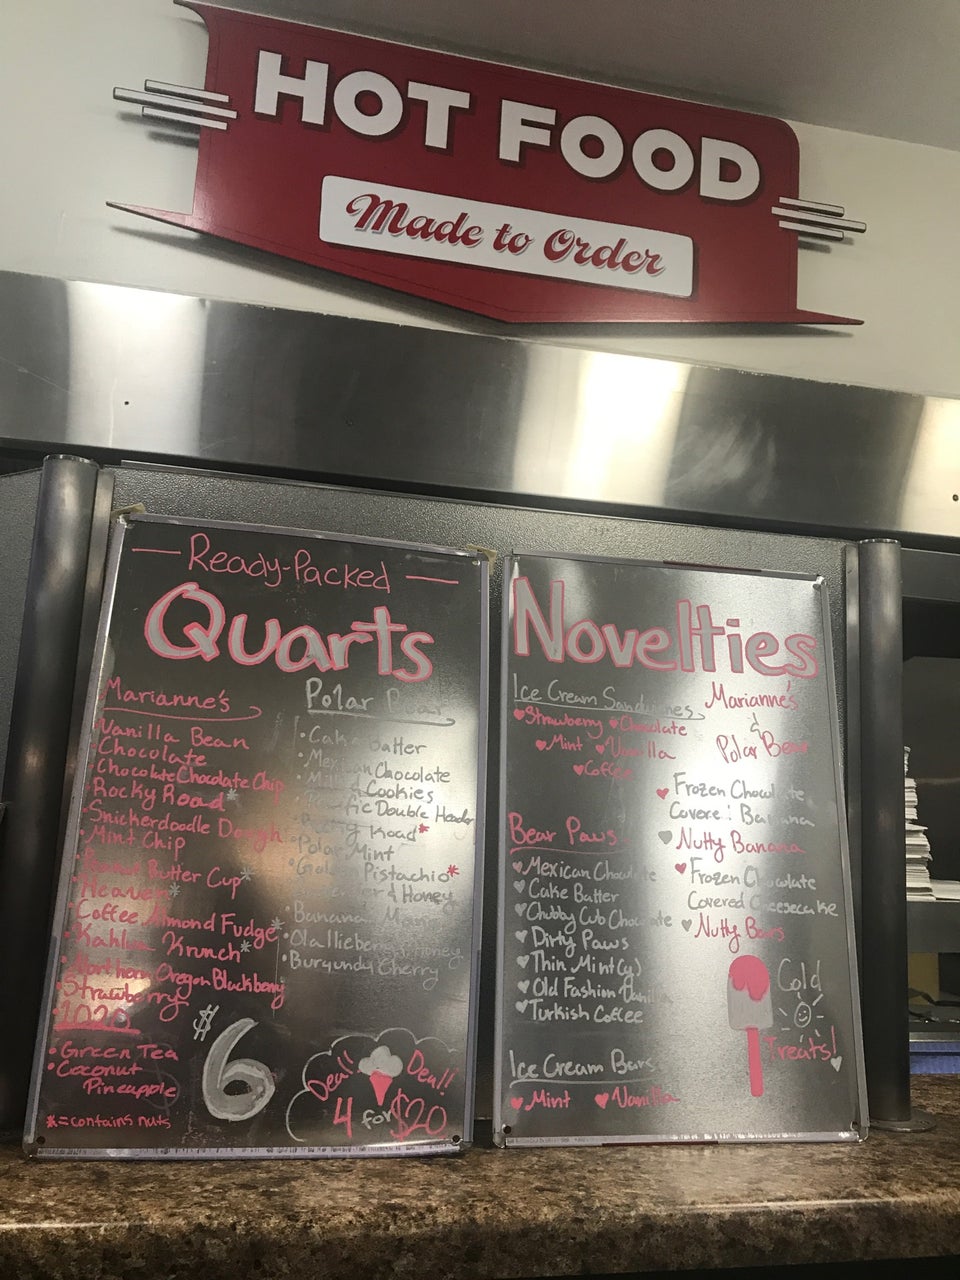 HOT FOOD
Made to Order
Ready-Packed
Quarts
Marianne's
Vanilla Bean
Chocolate
Chocolate Chocolate Chip
Rocky Road*
Snickerdoodle Dough
Mint Chip
Peanut Butter Cup*
Heaven*
Coffee Almond Fudge*
Kahlua Krunch*
Northern Oregon Blackberry
Strawberry
1020
Green Tea
Coconut
Pineapple
*=contains nuts
Polar Bear
Cake Batter
Mexican Chocolate
Cookies
Double Header
Road*
Polar Mint
Pistachio*
& Honey
Banana
Olallieberry
Burgundy Cherry
$6
Deal! Deal!!
4 for $20
Novelties
Ice Cream Sandwiches
Strawberry Chocolate
Mint Vanilla
Coffee
Bear Paws
Mexican Chocolate
Cake Batter
Chubby Cub Chocolate
Dirty Paws
Thin Mint(y)
Old Fashion Vanilla
Turkish Coffee
Ice Cream Bars
Mint Vanilla
Marianne's
&
Polar Bear
Frozen Chocolate
Covered Banana
Nutty Banana
Frozen Chocolate
Covered Cheesecake
Nutty Bars
Cold
Treats!